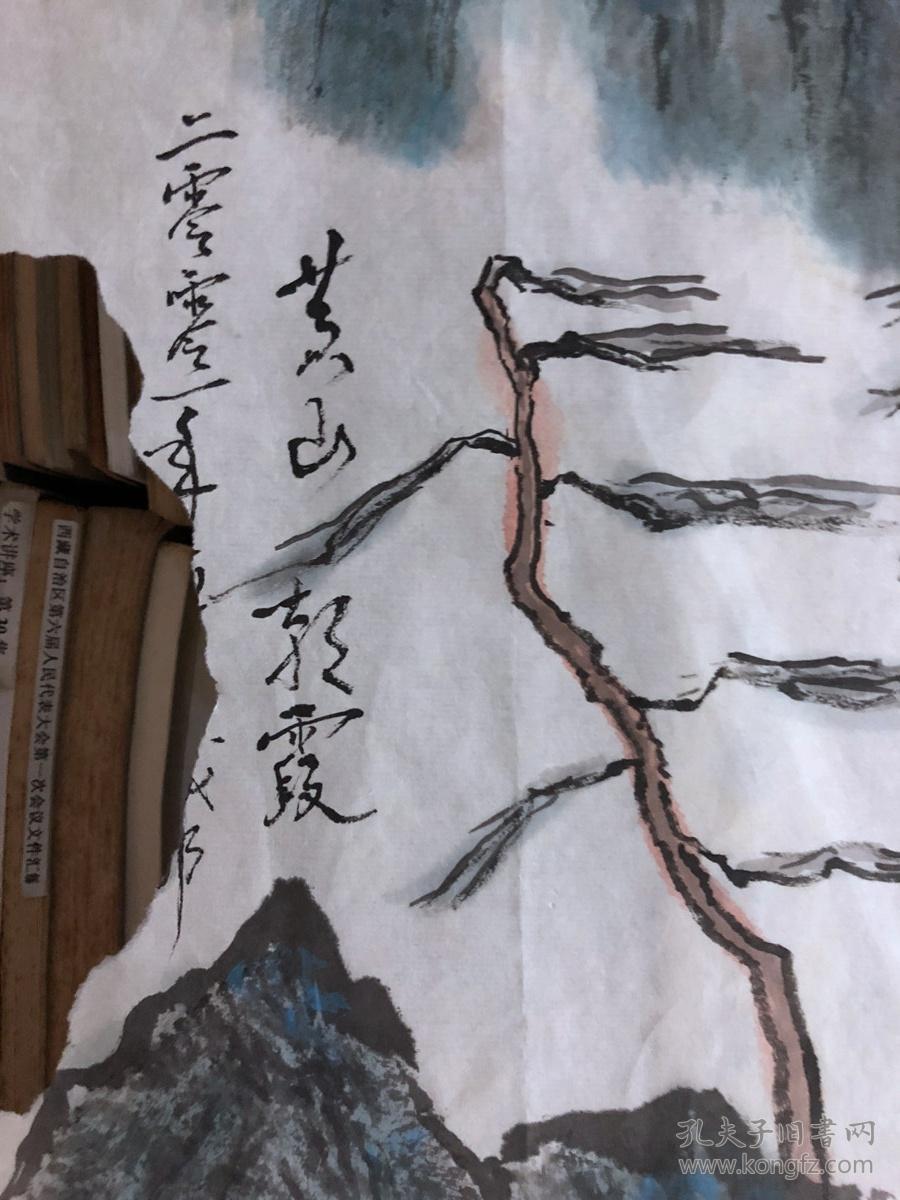 黄山朝霞
二零零一年
西藏自治区第六届人民代表大会第一次会议文件汇编
学术讲座：第30
孔夫子旧书网
www.kongfz.com